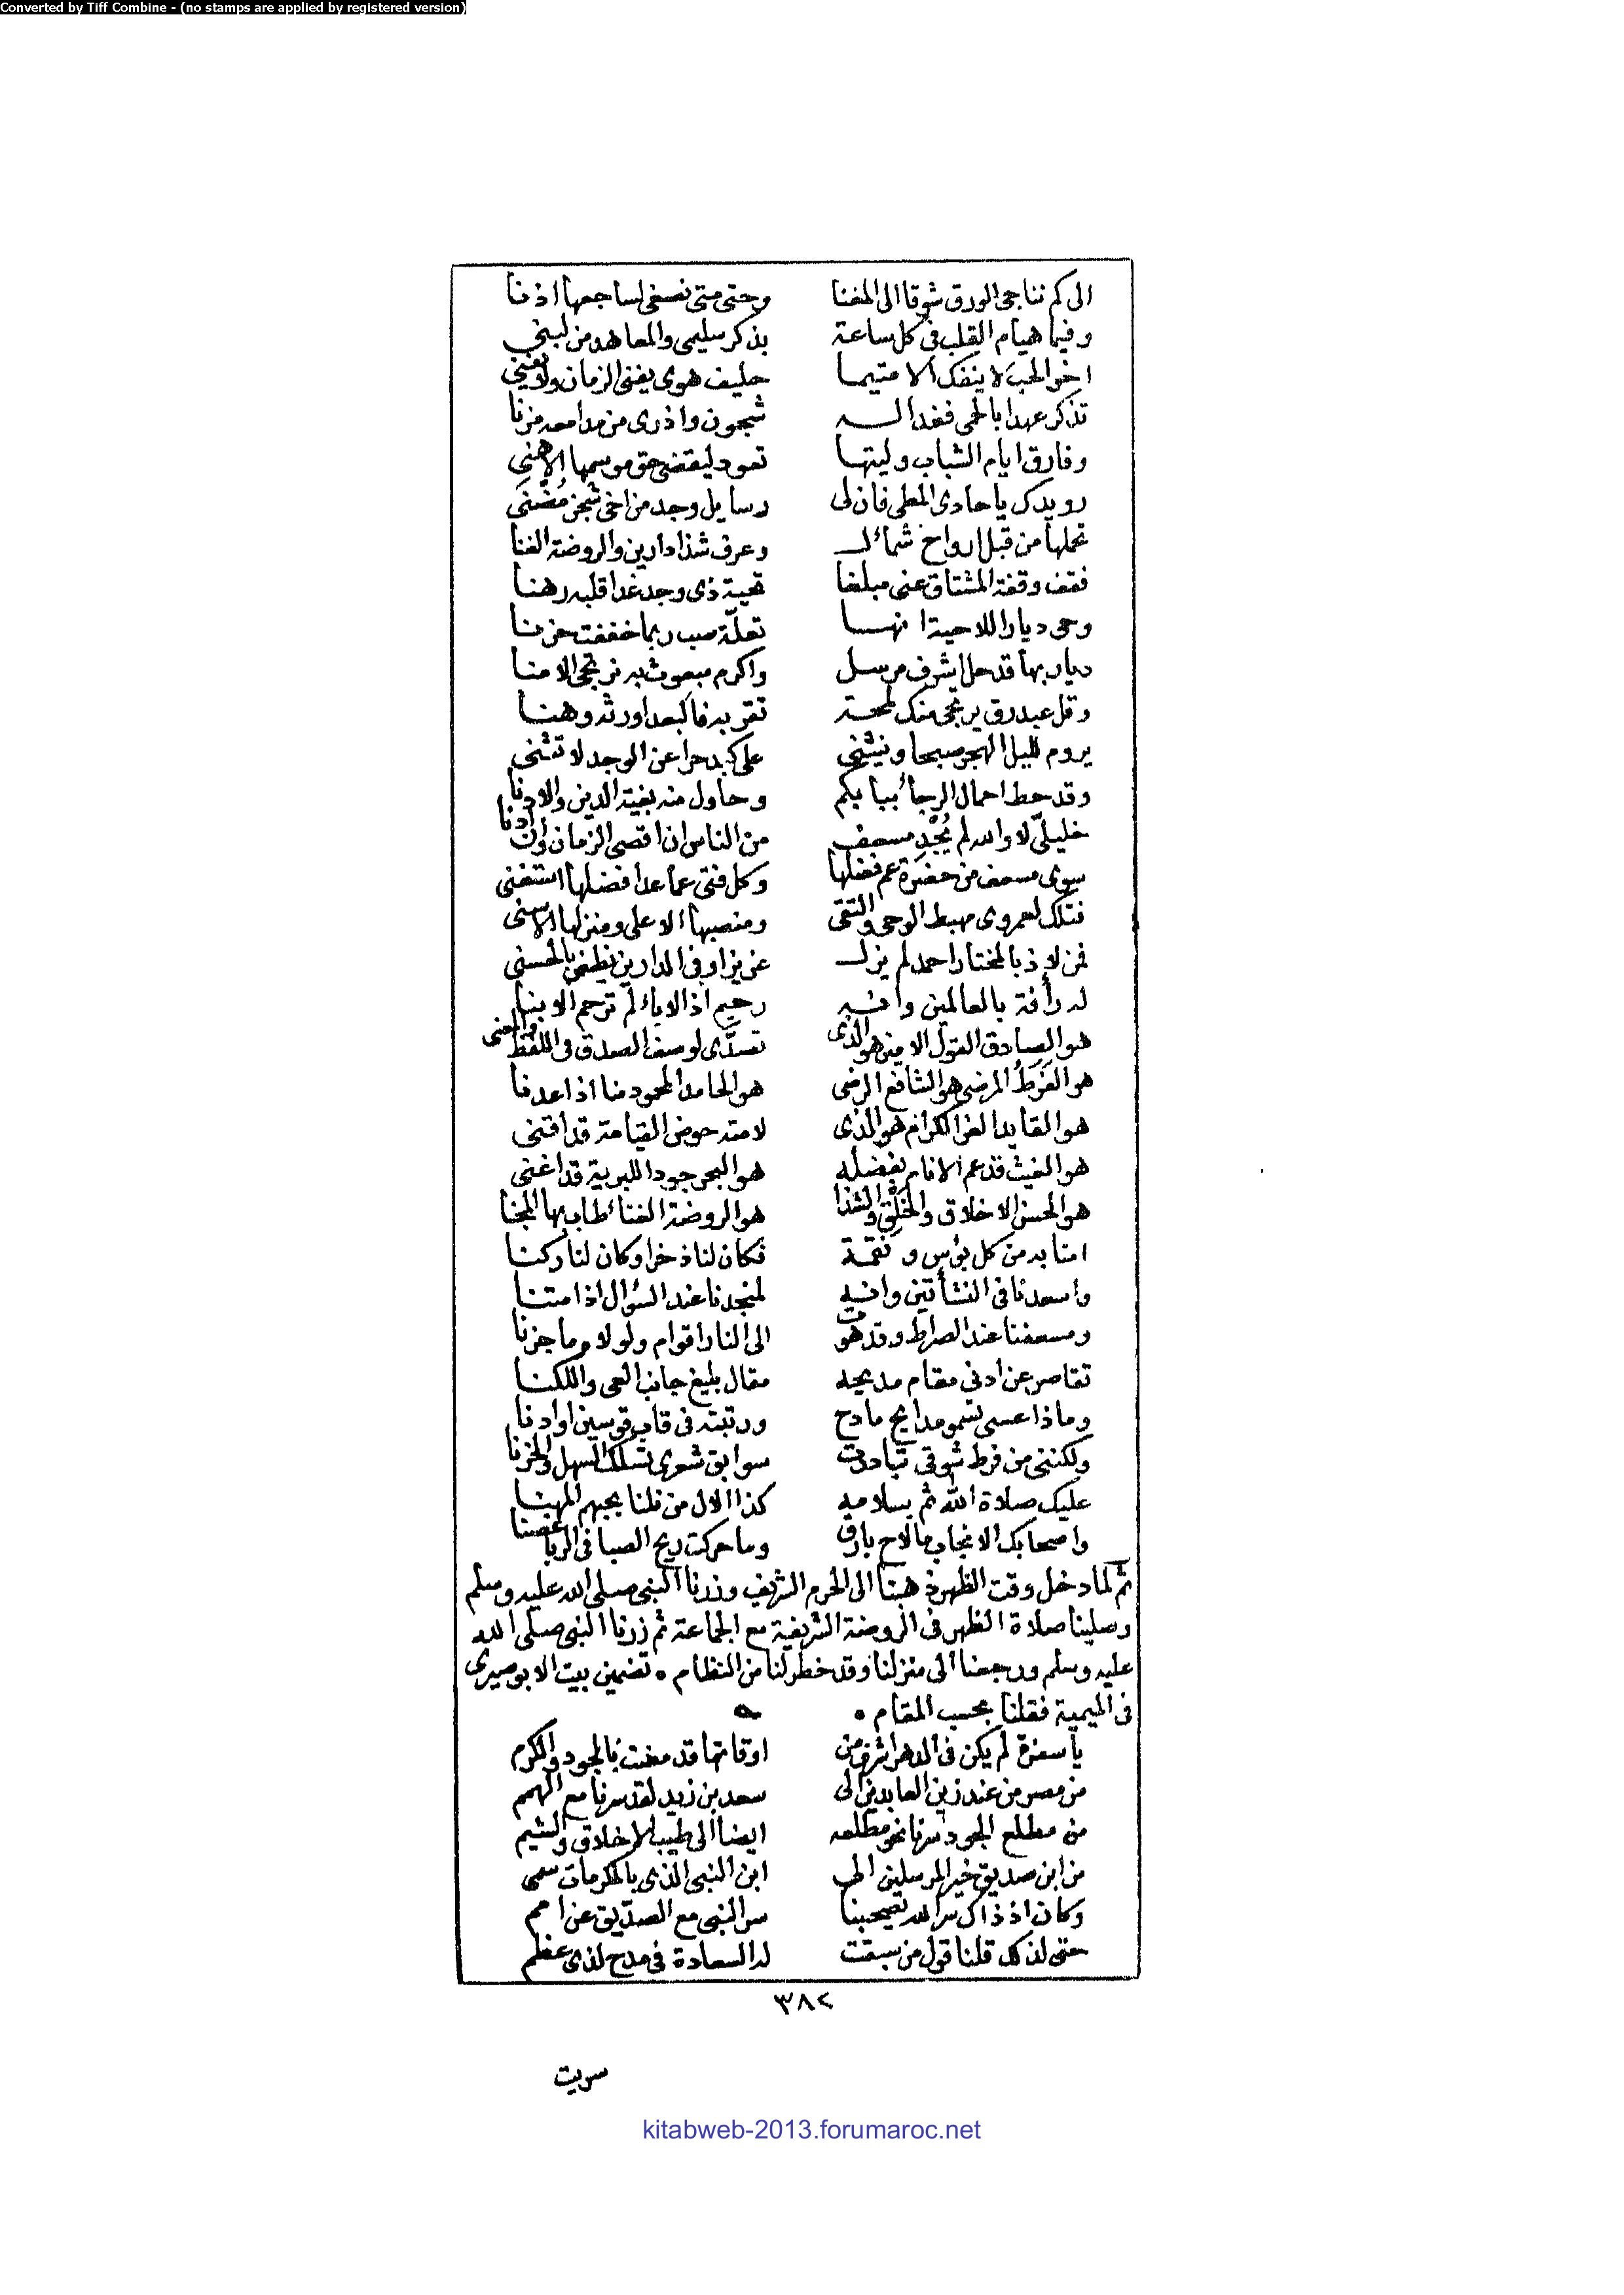 Converted by Tiff Combine - (no stamps are applied by registered version)
الى كم تناجى الورق شوقا الى المغنا وحتى متى تصغى لساجعها اذنا
وفيما هيام القلب فى كل ساعة بذكر سليمى والمعاهد من لبنى
اخو الحب لا ينفك الا متيما حليف هوى يفنى الزمان ولا يفنى
تذكر عهدا بالحمى فغدا له شجون واذرى من مدامعه مزنا
وفارق ايام الشباب وليتها تعود ليقضى حق موسمها الاهنى
رويدك يا حادى المطى فان لى رسايل وجد من اخى شجن مُضْنَى
تحملها من قبل ارواح شمائل وعرف شذا دارين والروضة الغنا
فقف وقفة المشتاق عنى مبلغا تحية ذى وجد غدا قلبه رهنا
وحى ديارا للاحبة انها تعلّة صب ربما خففت حزنا
ديار بها قد حل اشرف مرسل واكرم مبعوث به نرتجى الامنا
وقل عبد رق يرتجى منك لمحة تقربه فالبعد اورثه وهنا
يروم لليل الهجر صبحا وينثنى على كبد حرا عن الوجد لا تثنى
وقد حط احمال الرجاء ببابكم وحاول منه بغية الدين والادنا
خليلىّ لا والله لم يُجْدِ مسعف من الناس ان اقصى الزمان وان ادنا
سوى مسعف من حضرة عم فضلها وكل فتى عما عدا فضلها استغنى
فتلك لعمروى مهبط الوحى والتقى ومنصبها الاعلى ومنزلها الاسنى
فمن لاذ بالمختار احمد لم يزل عزيزا وفى الدارين يظفر بالحسنى
له رأفة بالعالمين وانه رحيم اذ الاباء لم ترحم الابنا
هو الصادق القول الامين هو الذى تصدَّى لوصف الصدق فى اللفظ والمعنى
هو الفَرَطُ المرضى هو الشافع الرضى هو الحامد المحمود منا اذا عدنا
هو القايد الغر الكرام هو الذى لامته حوض القيامة قد اقنى
هو الغيث قد عم الانام بفضله هو البحر جودا للبرية قد اغنى
هو الحسن الاخلاق والخَلْق والشذا هو الروضة الغناء طاب بها المجنا
امنا به من كل بؤس ونقمة فكان لنا ذخرا وكان لنا ركنا
واسعدنا فى النشأتين وانه لمنجدنا عند السؤال اذا متنا
ومسعفنا عند الصراط وقد هوت الى النار اقوام ولولاه ما جزنا
تقاصر عن ادنى مقام مديحه مقال بليغ جانب العى واللكنا
وماذا عسى تسمو مدايح مادح ورتبته فى قاب قوسين او ادنا
ولكننى من فرط شوقى تبادرت سوابق شعرى تسلك السهل والحزنا
عليك صلاة الله ثم سلامه كذا الال من نلنا بحبهم المهنا
واصحابك الانجاب ما لاح بارق وما حركت ريح الصبا فى الربا غصنا
ثم لما دخل وقت الظهر ذهبنا الى الحرم الشريف وزرنا النبى صلى الله عليه وسلم
وصلينا صلاة الظهر فى الروضة الشريفة مع الجماعة ثم زرنا النبى صلى الله
عليه وسلم ورجعنا الى منزلنا وقد خطر لنا من النظام ٠ تضمين بيت الابوصيرى
فى الميمية فقلنا بحسب المقام ٠
يا سفرة لم يكن فى الدهر اشرف من اوقاتها قد مضت بالجود والكرم
من مصر من عند زين العابدين الى سعد بن زيد لقد سرنا مع الهمم
من مطلع الجود سرنا نحو مطلعه ايضا الى طيب الاخلاق والشيم
من ابن صديق خير المرسلين الى ابن النبى الذى بالمكرمات سمى
وكان اذ ذاك سر الله يصحبنا سر النبى مع الصدّيق عن امم
حتى لذلك قلنا قول من سبقت له السعادة فى مدح لذى عظم
٣٨٢
سريت
kitabweb-2013.forumaroc.net